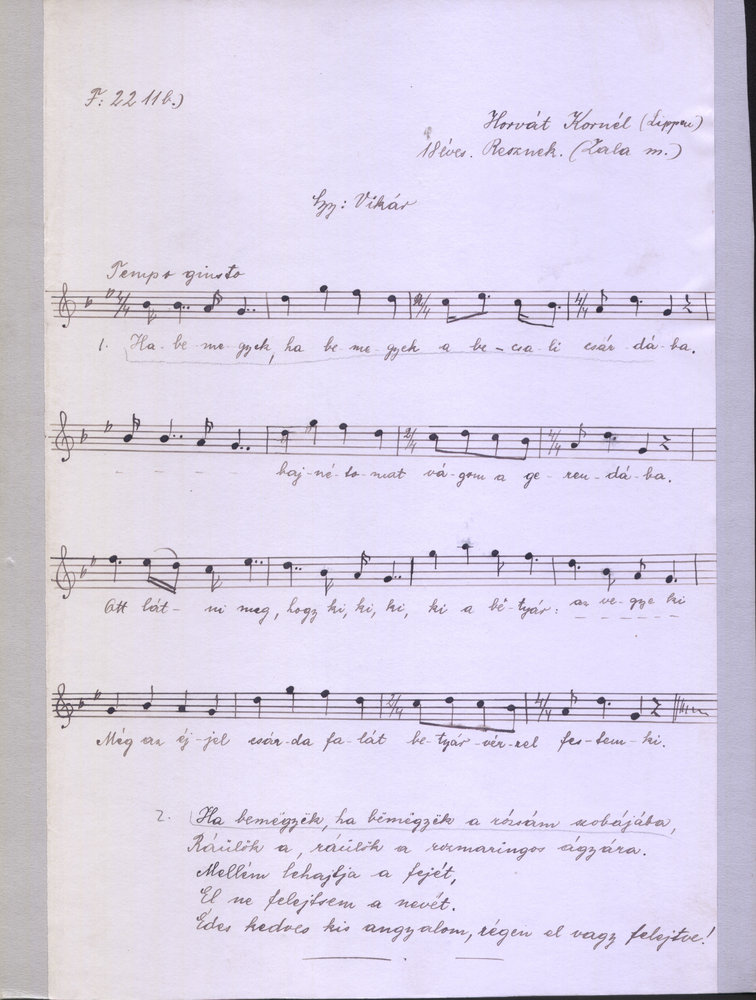 F: 2211b.)
Horvát Kornél (Lippen)
18 éves. Resznek. (Zala m.)
Gyj: Vikár
Tempo giusto
1. Ha-be-me-gyek, ha be-me-gyek a be-csa-li csár-dá-ba.
baj-né-to-mat vá-gom a ge-ren-dá-ba.
Ott lát-ni meg, hogy ki, ki, ki, ki a bë-tyár: az ve-gye ki
Még az éj-jel csár-da fa-lát be-tyár-vér-rel fes-tem-ki.
2. Ha bemëgyëk, ha bëmëgyëk a rózsám szobájába,
Ráülök a, ráülök a rozmaringos ágyára.
Mellém lehajtja a fejét,
El ne felejtsem a nevét.
Édes kedves kis angyalom, régen el vagy felejtve!